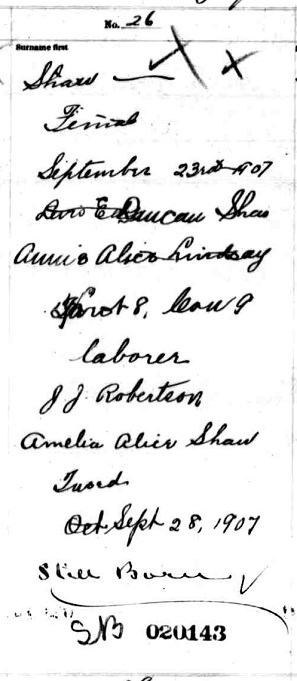 No. 26
Surname first
Shaw
Female
September 23rd 1907
Duncan Shaw
Annie Alice Lindsay
Lot 8, Con 9
laborer
J J. Robertson
Amelia Alice Shaw
Tweed
Oct Sept 28, 1907
Still Born
SB 020143